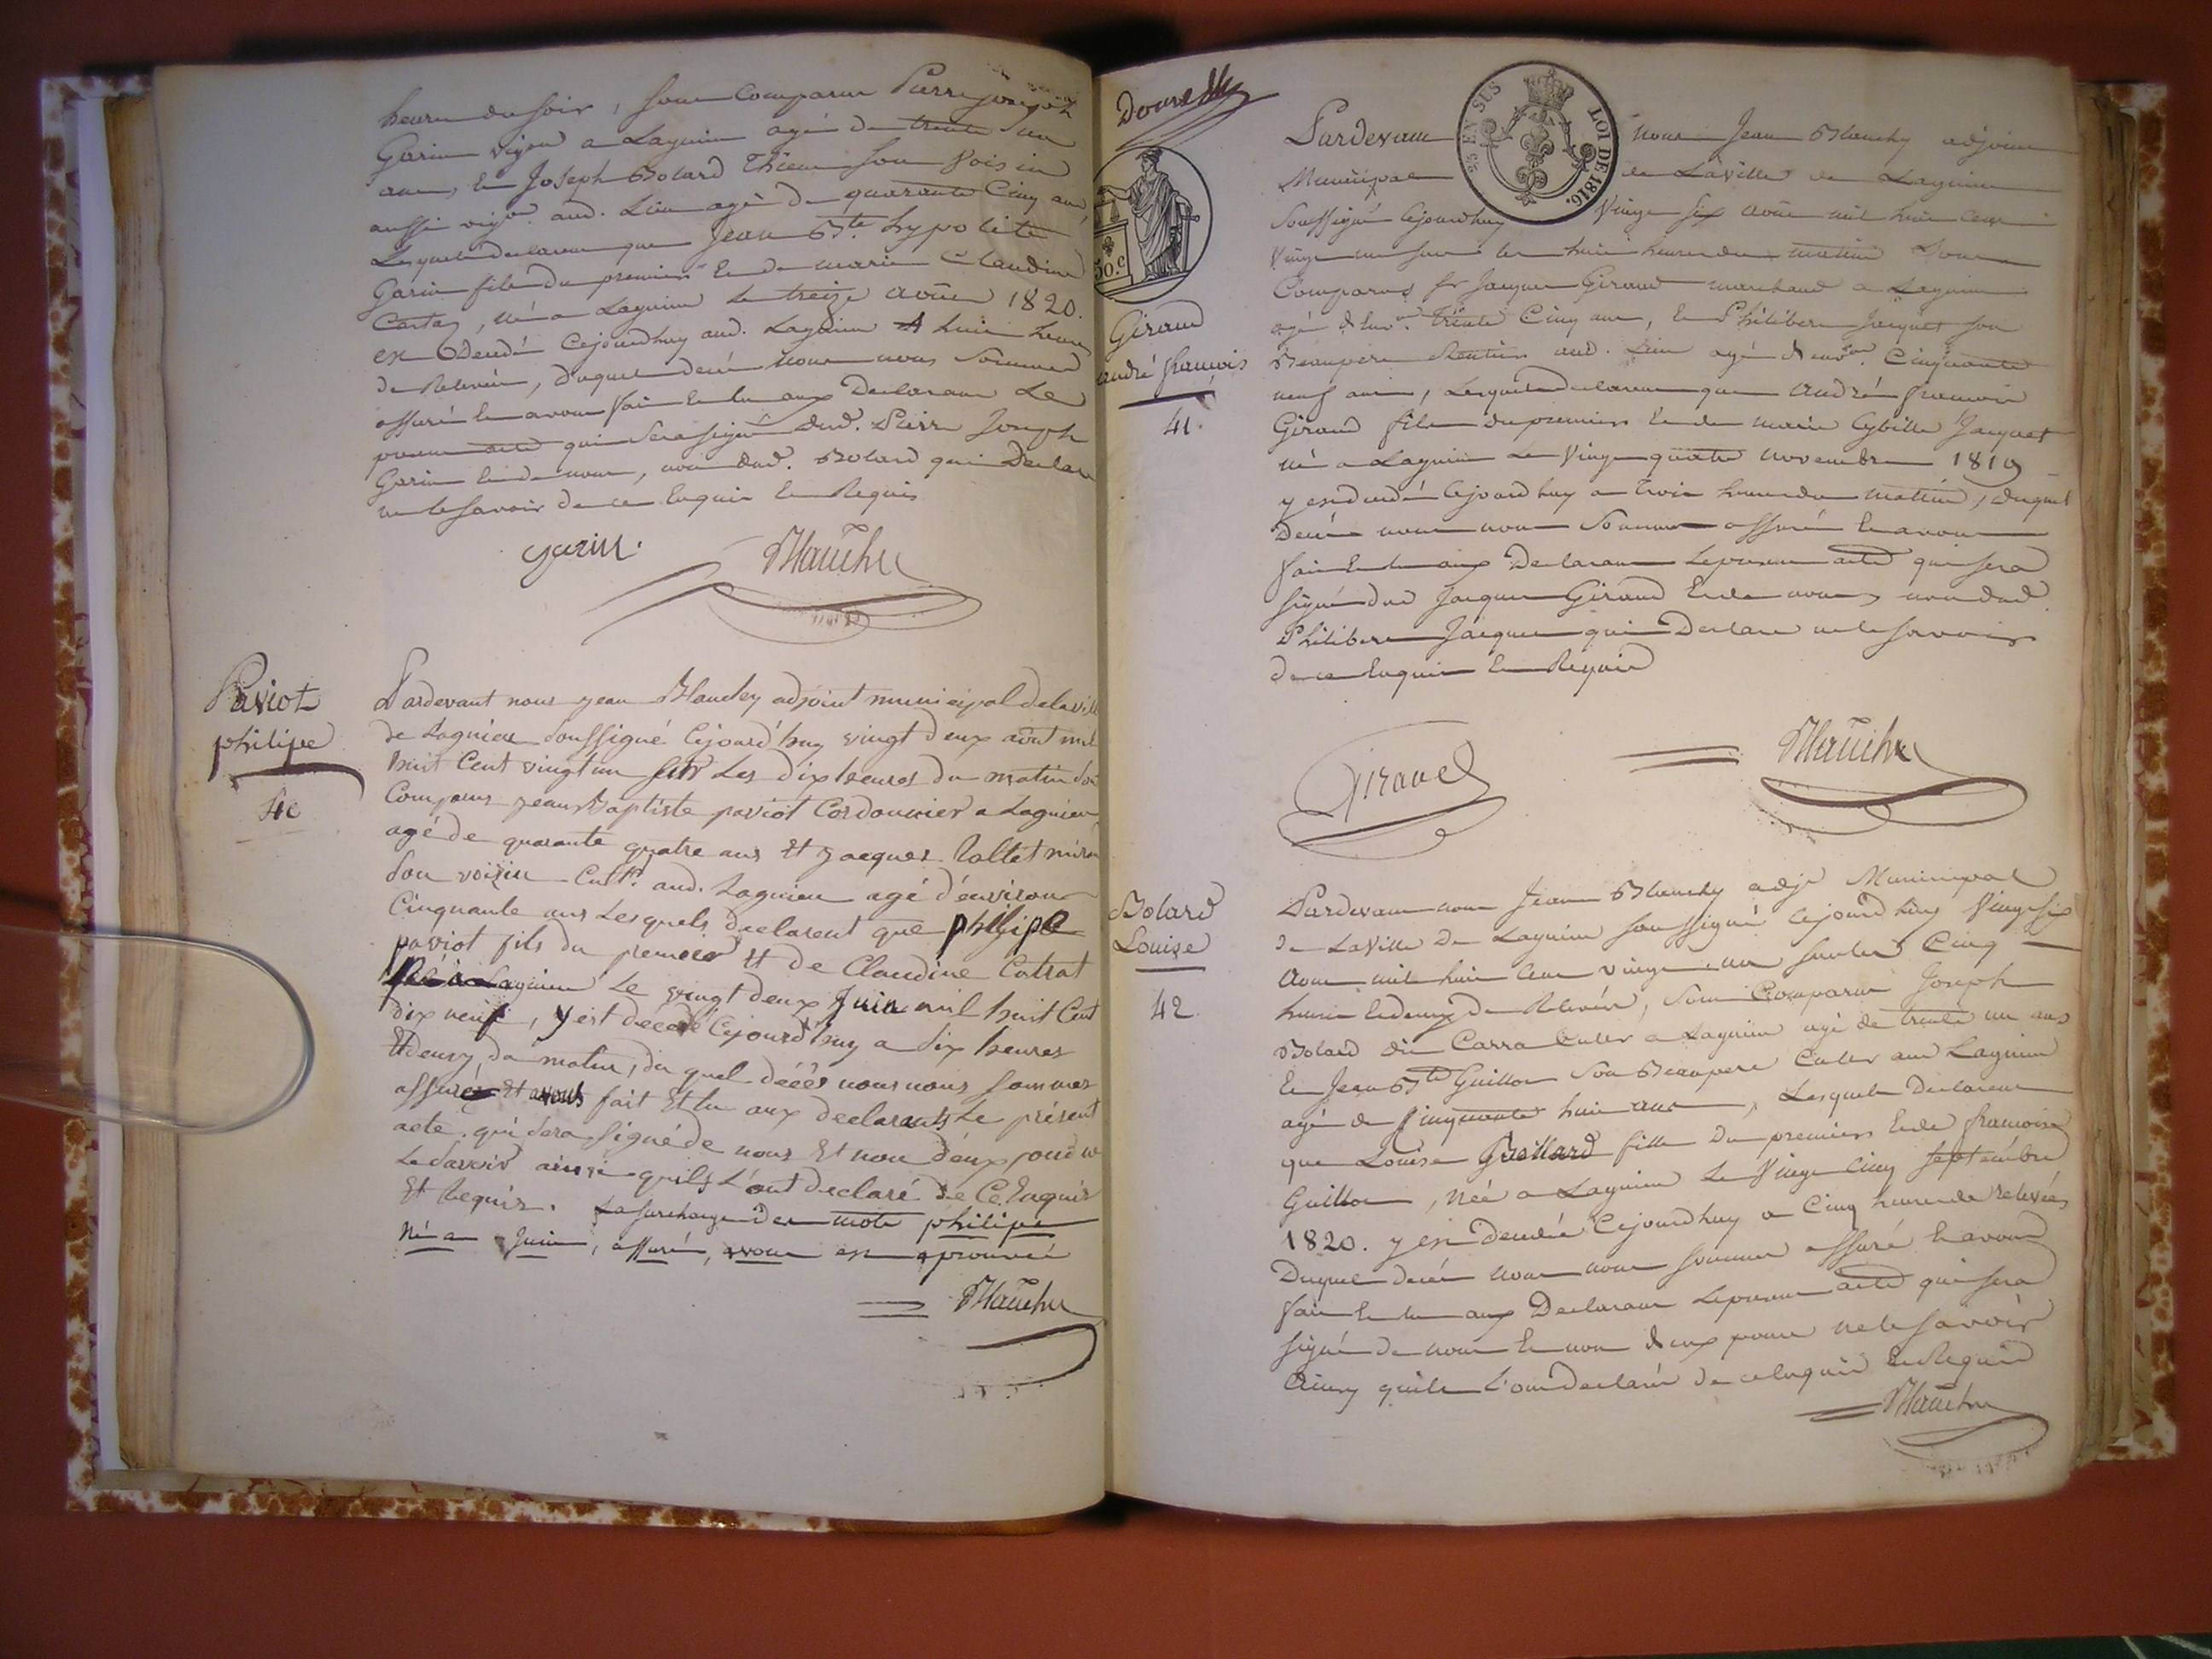 heure du soir, sont comparus Pierre joseph
Garin vigon a Lagnieu agé de trente un
ans, et Joseph Bolard Thieu son voisin
aussi vigon aud. Lieu agé de quarante Cinq ans,
Lesquels declarent que Jean Bte hypolite
Garin fils du premier et de marie Claudine
né a Lagnieu le treize août 1820.
est Décédé Cejourdhuy aud. Lagnieu A huit heures
de Relevée, duquel décès nous nous Sommes
assuré et avons fait et lu aux Declarants Le
présent acte qui Sera signé dud. Pierre Joseph
Garin et de nous, non dud. Bolard qui Declare
ne le Savoir de ce Enquis et Requis
garin. Blanchy
Paviot
philipe
40
Pardevant nous jean Blanchy adjoint municipal de la ville
de Lagnieu Soussigné Cejourd'huy vingt deux août mil
huit Cent vingt un sur Les dix heures du matin Sont
Comparus jean Baptiste paviot Cordonnier a Lagnieu,
agé de quarante quatre ans Et jacques
Son voisin Cultr. aud. Lagnieu agé d'environ
Cinquante ans Lesquels declarent que philipe
paviot fils du premier Et de Claudine Catrat
né à Lagnieu Le vingt deux Juin mil huit Cent
dix neuf, y est décédé Cejourd'huy a Six heures
Et demy du matin, du quel décès nous nous Sommes
assurés Et avons fait Et lu aux declarants Le présent
acte qui Sera Signé de nous Et non d'eux pour ne
Le Savoir ainsi quils L'ont declaré de Ce Enquis
Et Requis. La surcharge des mots philipe
Né a Juin, assuré, avons est aprouvée
Blanchy
Douze
25 EN SUS
LOI DE 1816.
50.c
Giraud
andré françois
41.
Pardevant nous Jean Blanchy adjoint
Municipal de La ville de Lagnieu
Soussigné Cejourdhuy Vingt Six août mil huit Cent
Vingt un sur les huit heures du matin Sont
Comparus sr Jacques Giraud marchand a Lagnieu
agé d'envon Trente Cinq ans, et Philibert Jacquet son
Beaupere Rentier aud. Lieu agé d'envon Cinquante
neuf ans, Lesquels declarent que André françois
Giraud fils du premier et de marie Cybille Jacquet
né a Lagnieu Le Vingt quatre novembre 1819
y est décédé Cejourdhuy a trois heures du matin, duquel
Décès nous nous Sommes assuré et avons
fait et lu aux Declarants Le présent acte qui Sera
signé dud Jacques Giraud et de nous, non dud.
Philibert Jacquet qui Declare ne le Savoir
de ce Enquis et Requis
Giraud Blanchy
Bolard
Louise
42.
Pardevant nous Jean Blanchy adjt Municipal
de La Ville De Lagnieu soussigné Cejourdhuy Vingt Six
Août mil huit Cent vingt un sur les Cinq
heures et demy De Relevée, Sont Comparus Joseph
Bolard dit Carra Cultr a Lagnieu agé de trente un ans
et Jean Bte Guillon Son Beaupere Cultr aud Lagnieu
agé de Cinquante huit ans, Lesquels Declarent
que Louise Bollard fille Du premier et de françoise
Guillon, née a Lagnieu Le Vingt Cinq septembre
1820. y est Décédée Cejourdhuy a Cinq heures de relevée
Duquel décès nous nous Sommes assuré et avons
fait et lu aux Declarants Le présent acte qui sera
signé de nous et non d'eux pour ne le Savoir
Ainsy quils L'ont Declaré de ce Enquis et Requis
Blanchy